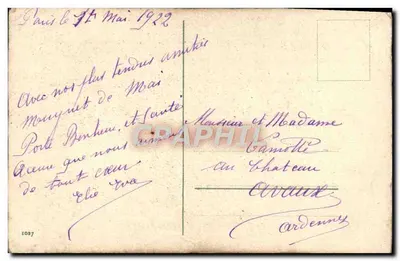 Paris le 1er Mai 1922
Avec nos plus tendres amitiés
Muguet de Mai
Porte Bonheur, et Santé
A ceux que nous aimons
de tout cœur
Elie Eva
Monsieur et Madame
Camotte
au Chateau
avaux
ardennes
CPAPHIL
1037